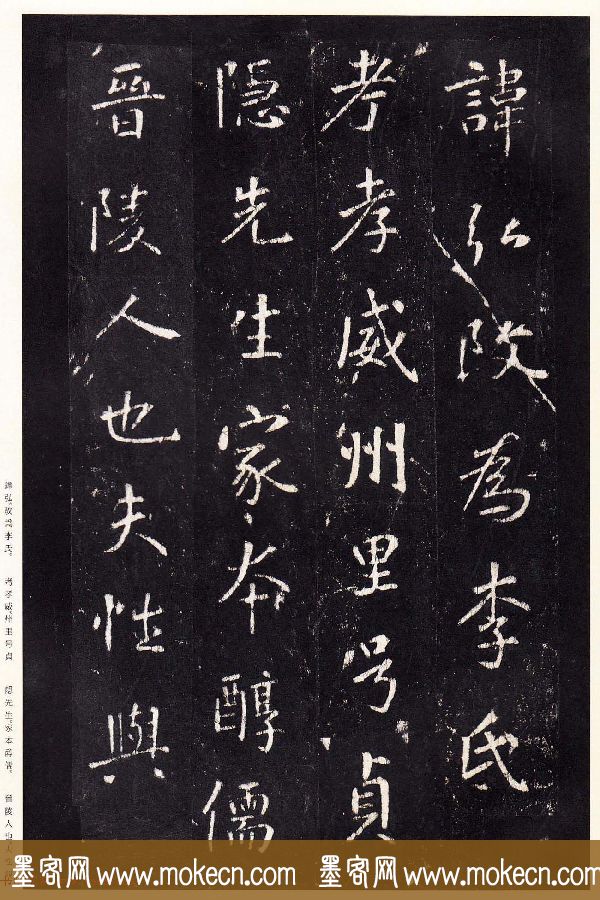 諱弘改為李氏
考孝威州里号貞
隐先生家本醇儒
晉陵人也夫性與
諱弘。改為李氏。 考孝威。州里号貞 隐先生。家本醇儒。 晉陵人也
墨客网 www.mokecn.com 墨客网 www.mokecn.com